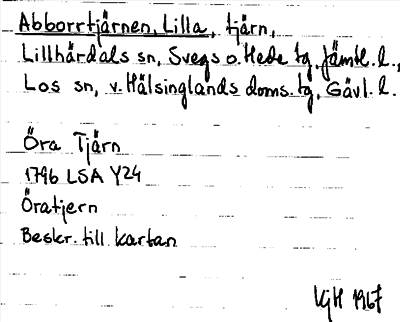 Abborrtjärnen, Lilla, tjärn,
Lillhärdals sn, Svegs o. Hede tg, Jämtl. l.,
Los sn, v. Hälsinglands doms. tg, Gävl. l.
Öra Tjärn
1796 LSA Y24
Öratjern
Beskr. till kartan
KjH 1967